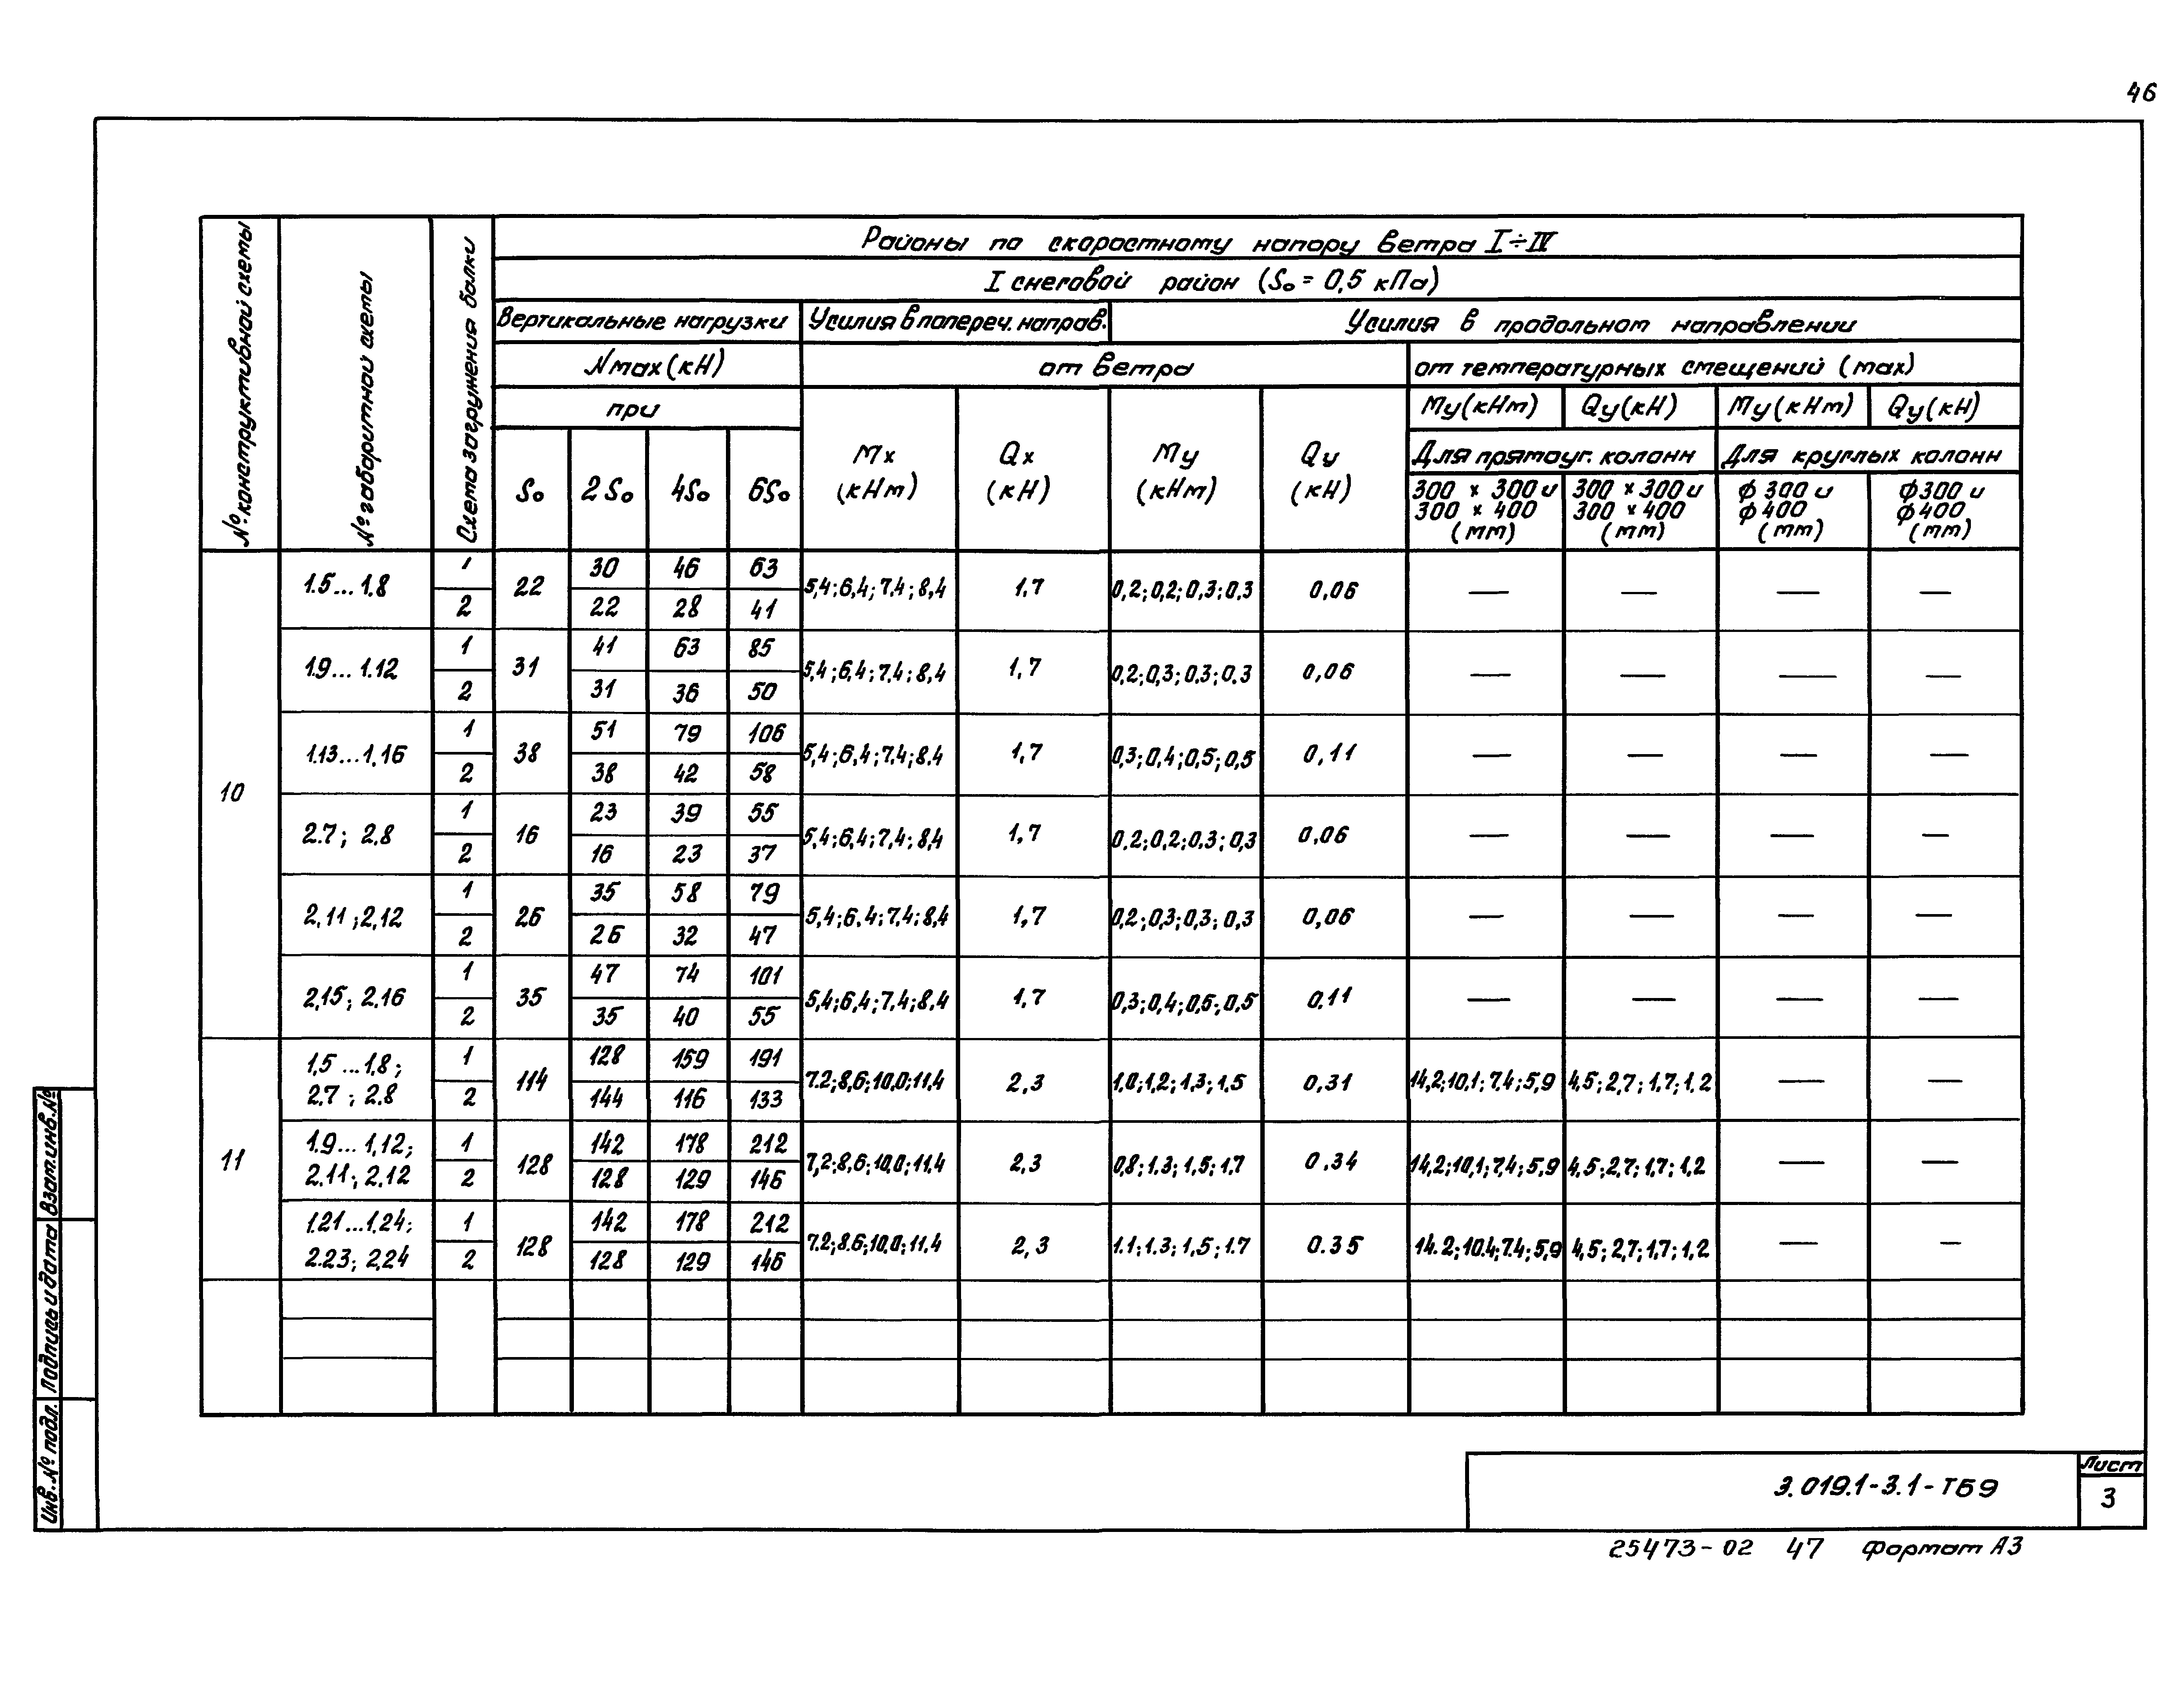 46
№ конструктивной схемы
№ габаритной схемы
Схема загружения балки
Районы по скоростному напору ветра I÷IV
I снеговой район (S₀ = 0,5 кПа)
Вертикальные нагрузки Усилия в попереч. направ. Усилия в продольном направлении
Nmax (кН) от ветра от температурных смещений (max)
при Mx (кНм) Qx (кН) My (кНм) Qy (кН) My (кНм) Qy (кН) My (кНм) Qy (кН)
Для прямоуг. колонн Для круглых колонн
S₀ 2S₀ 4S₀ 6S₀ 300 × 300 и 300 × 400 (мм) 300 × 300 и 300 × 400 (мм) ф 300 и ф 400 (мм) ф 300 и ф 400 (мм)
10
1.5... 1.8 1 22 30 46 63 5,4; 6,4; 7.4; 8,4 1,7 0,2; 0,2; 0,3; 0,3 0,06 — — — —
2 22 28 41
1.9... 1.12 1 31 41 63 85 5,4; 6,4; 7,4; 8,4 1,7 0,2; 0,3; 0.3; 0.3 0,06 — — — —
2 31 36 50
1.13...1.16 1 38 51 79 106 5,4; 6,4; 7.4; 8.4 1,7 0,3; 0,4; 0,5; 0,5 0,11 — — — —
2 38 42 58
2.7; 2.8 1 16 23 39 55 5,4; 6,4; 7,4; 8,4 1,7 0.2; 0,2; 0.3; 0,3 0,06 — — — —
2 16 23 37
2.11; 2,12 1 26 35 58 79 5,4; 6.4; 7.4; 8,4 1,7 0,2; 0,3; 0,3; 0,3 0,06 — — — —
2 26 32 47
2,15; 2.16 1 35 47 74 101 5,4; 6,4; 7,4; 8,4 1,7 0,3; 0,4; 0,5; 0,5 0.11 — — — —
2 35 40 55
11
1,5 ... 1,8; 2.7; 2.8 1 114 128 159 191 7.2; 8,6; 10,0; 11,4 2,3 1,0; 1,2; 1,3; 1,5 0,31 14,2; 10,1; 7,4; 5,9 4,5; 2,7; 1,7; 1,2 — —
2 144 116 133
1.9... 1,12; 2.11; 2.12 1 128 142 178 212 7,2; 8,6; 10,0; 11,4 2,3 0,8; 1.3; 1,5; 1,7 0.34 14,2; 10,1; 7,4; 5,9 4,5; 2,7; 1,7; 1,2 — —
2 128 129 146
1.21...1.24; 2.23; 2,24 1 128 142 178 212 7.2; 8.6; 10.0; 11.4 2,3 1.1; 1.3; 1,5; 1.7 0.35 14.2; 10.4; 7.4; 5,9 4,5; 2,7; 1,7; 1,2 — —
2 128 129 146
Взам.инв.№
Подпись и дата
Инв.№ подл.
3.019.1-3.1-ТБ9
Лист
3
25473-02 47 Формат А3